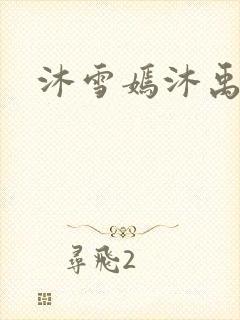 沐雪嫣沐禹
尋飛2